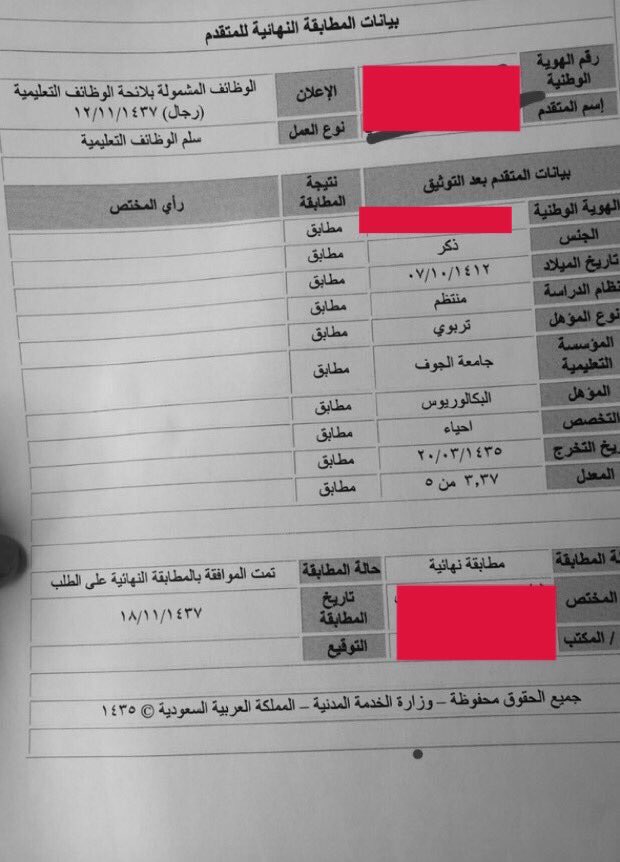 بيانات المطابقة النهائية للمتقدم
رقم الهوية الوطنية
الإعلان
الوظائف المشمولة بلائحة الوظائف التعليمية (رجال) ١٢/١١/١٤٣٧
إسم المتقدم
نوع العمل
سلم الوظائف التعليمية
بيانات المتقدم بعد التوثيق
نتيجة المطابقة
رأي المختص
الهوية الوطنية
مطابق
الجنس
ذكر
مطابق
تاريخ الميلاد
٠٧/١٠/١٤١٢
مطابق
نظام الدراسة
منتظم
مطابق
نوع المؤهل
تربوي
مطابق
المؤسسة التعليمية
جامعة الجوف
مطابق
المؤهل
البكالوريوس
مطابق
التخصص
احياء
مطابق
يخ التخرج
٢٠/٠٣/١٤٣٥
مطابق
المعدل
٣,٣٧ من ٥
مطابق
لة المطابقة
مطابقة نهائية
حالة المطابقة
تمت الموافقة بالمطابقة النهائية على الطلب
المختص
تاريخ المطابقة
١٨/١١/١٤٣٧
/ المكتب
التوقيع
جميع الحقوق محفوظة – وزارة الخدمة المدنية – المملكة العربية السعودية © ١٤٣٥